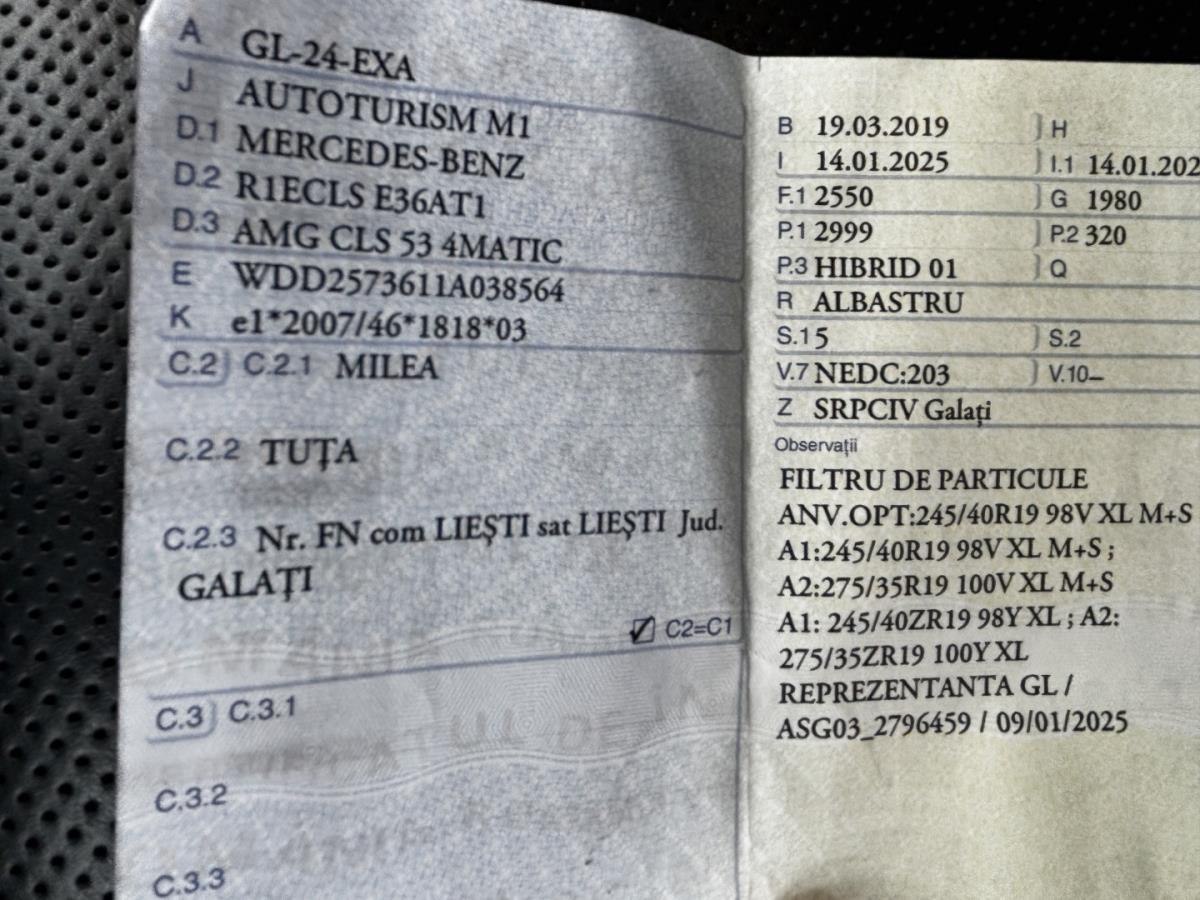 A GL-24-EXA
J AUTOTURISM M1
D.1 MERCEDES-BENZ
D.2 R1ECLS E36AT1
D.3 AMG CLS 53 4MATIC
E WDD2573611A038564
K e1*2007/46*1818*03
C.2 C.2.1 MILEA
C.2.2 TUȚA
C.2.3 Nr. FN com LIEȘTI sat LIEȘTI Jud.
GALAȚI
C2=C1
C.3 C.3.1
C.3.2
C.3.3
B 19.03.2019 H
I 14.01.2025 I.1 14.01.202
F.1 2550 G 1980
P.1 2999 P.2 320
P.3 HIBRID 01 Q
R ALBASTRU
S.1 5 S.2
V.7 NEDC:203 V.10–
Z SRPCIV Galați
Observații
FILTRU DE PARTICULE
ANV.OPT:245/40R19 98V XL M+S
A1:245/40R19 98V XL M+S ;
A2:275/35R19 100V XL M+S
A1: 245/40ZR19 98Y XL ; A2:
275/35ZR19 100Y XL
REPREZENTANTA GL /
ASG03_2796459 / 09/01/2025